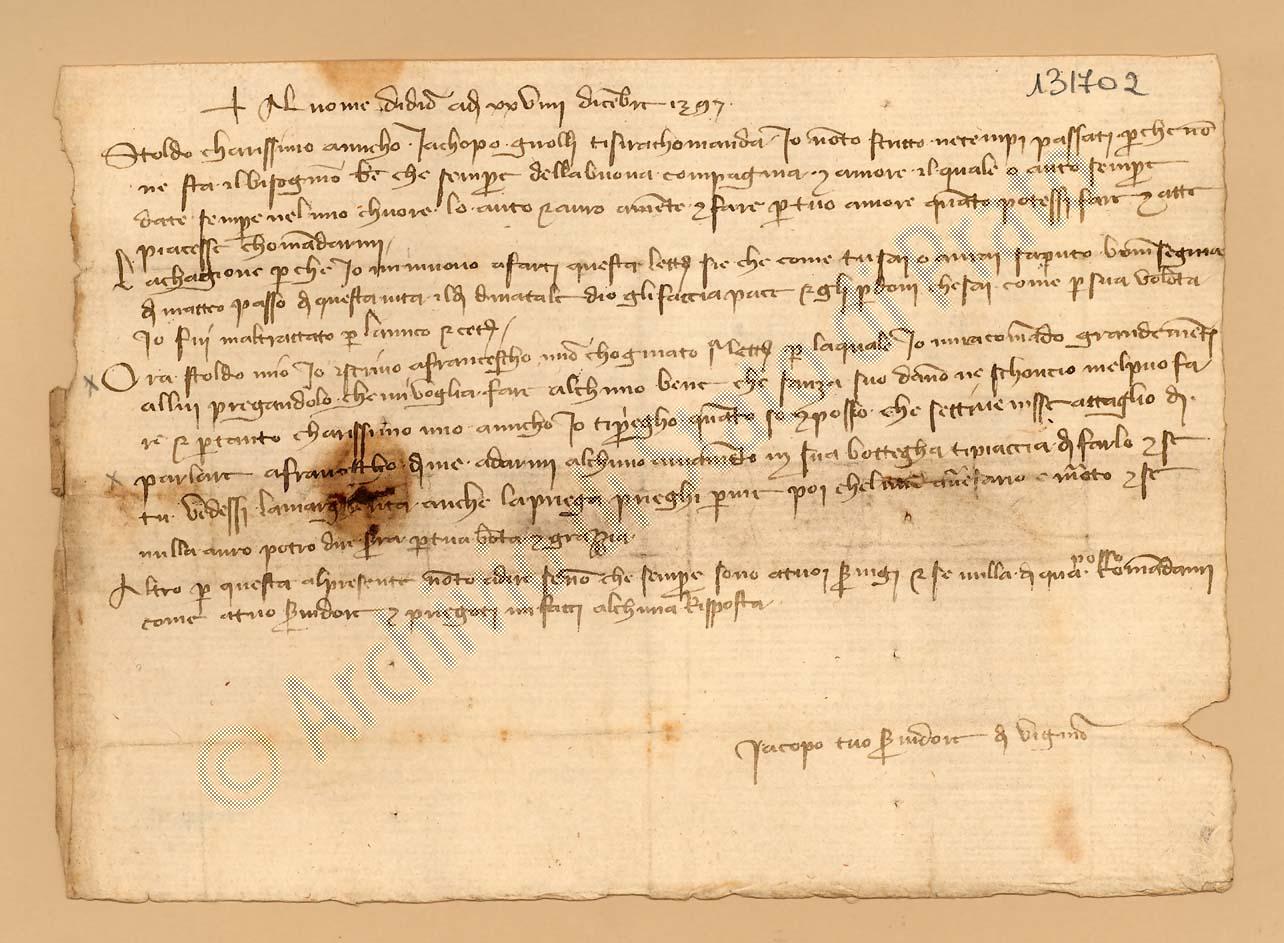 131702
+ Al nome didio adi xxviiii dicebre 1397.
Stoldo charissimo amicho. Jachopo guolli tisirachomanda. Jo noto scritto netempi passati perche no
ne sta il bisogno be che sempre della buona compagnia et amore il quale o auto sempre
date sempre nel mio chuore lo auto et auro a mente et fare per tuo amore quato potessi fare et atte
piacesse chomadarmi
La chagione perche Jo mi muovo afarti questa letta sie che come tu sai o aurai saputo
di matteo passo di questa vita il di dinatale dio gli faccia pace et gli perdoni che sai come per sua volota
Jo fui maltrattato per lamico et cet
Ora stoldo mio Jo iscrivo afrancescho mio chognato letta per laquale Jo miracomado grandemete
allui pregandolo che mi voglia fare alchuno bene che sanza suo dano ne schoncio melpuo fa
re et pertanto charissimo mio amicho Jo ti priegho quato so et posso che settivenisse attaglio di
parlare afrancescho di me adarmi alchuno aviameto in sua bottegha ti piaccia di farlo et se
tu vedessi la margherita anche la priega prieghi per me poi chel mio aversario e morto et se
nulla auro potro dire sira per tua bota et grazia
Altro per questa alpresente noto adire seno che sempre sono atuoi servigi et se nulla di qua posso Komadami
come atuo servidore et priegoti mi facci alchuna Risposta
Jacopo tuo servidore di
© Archivio di Stato di Prato